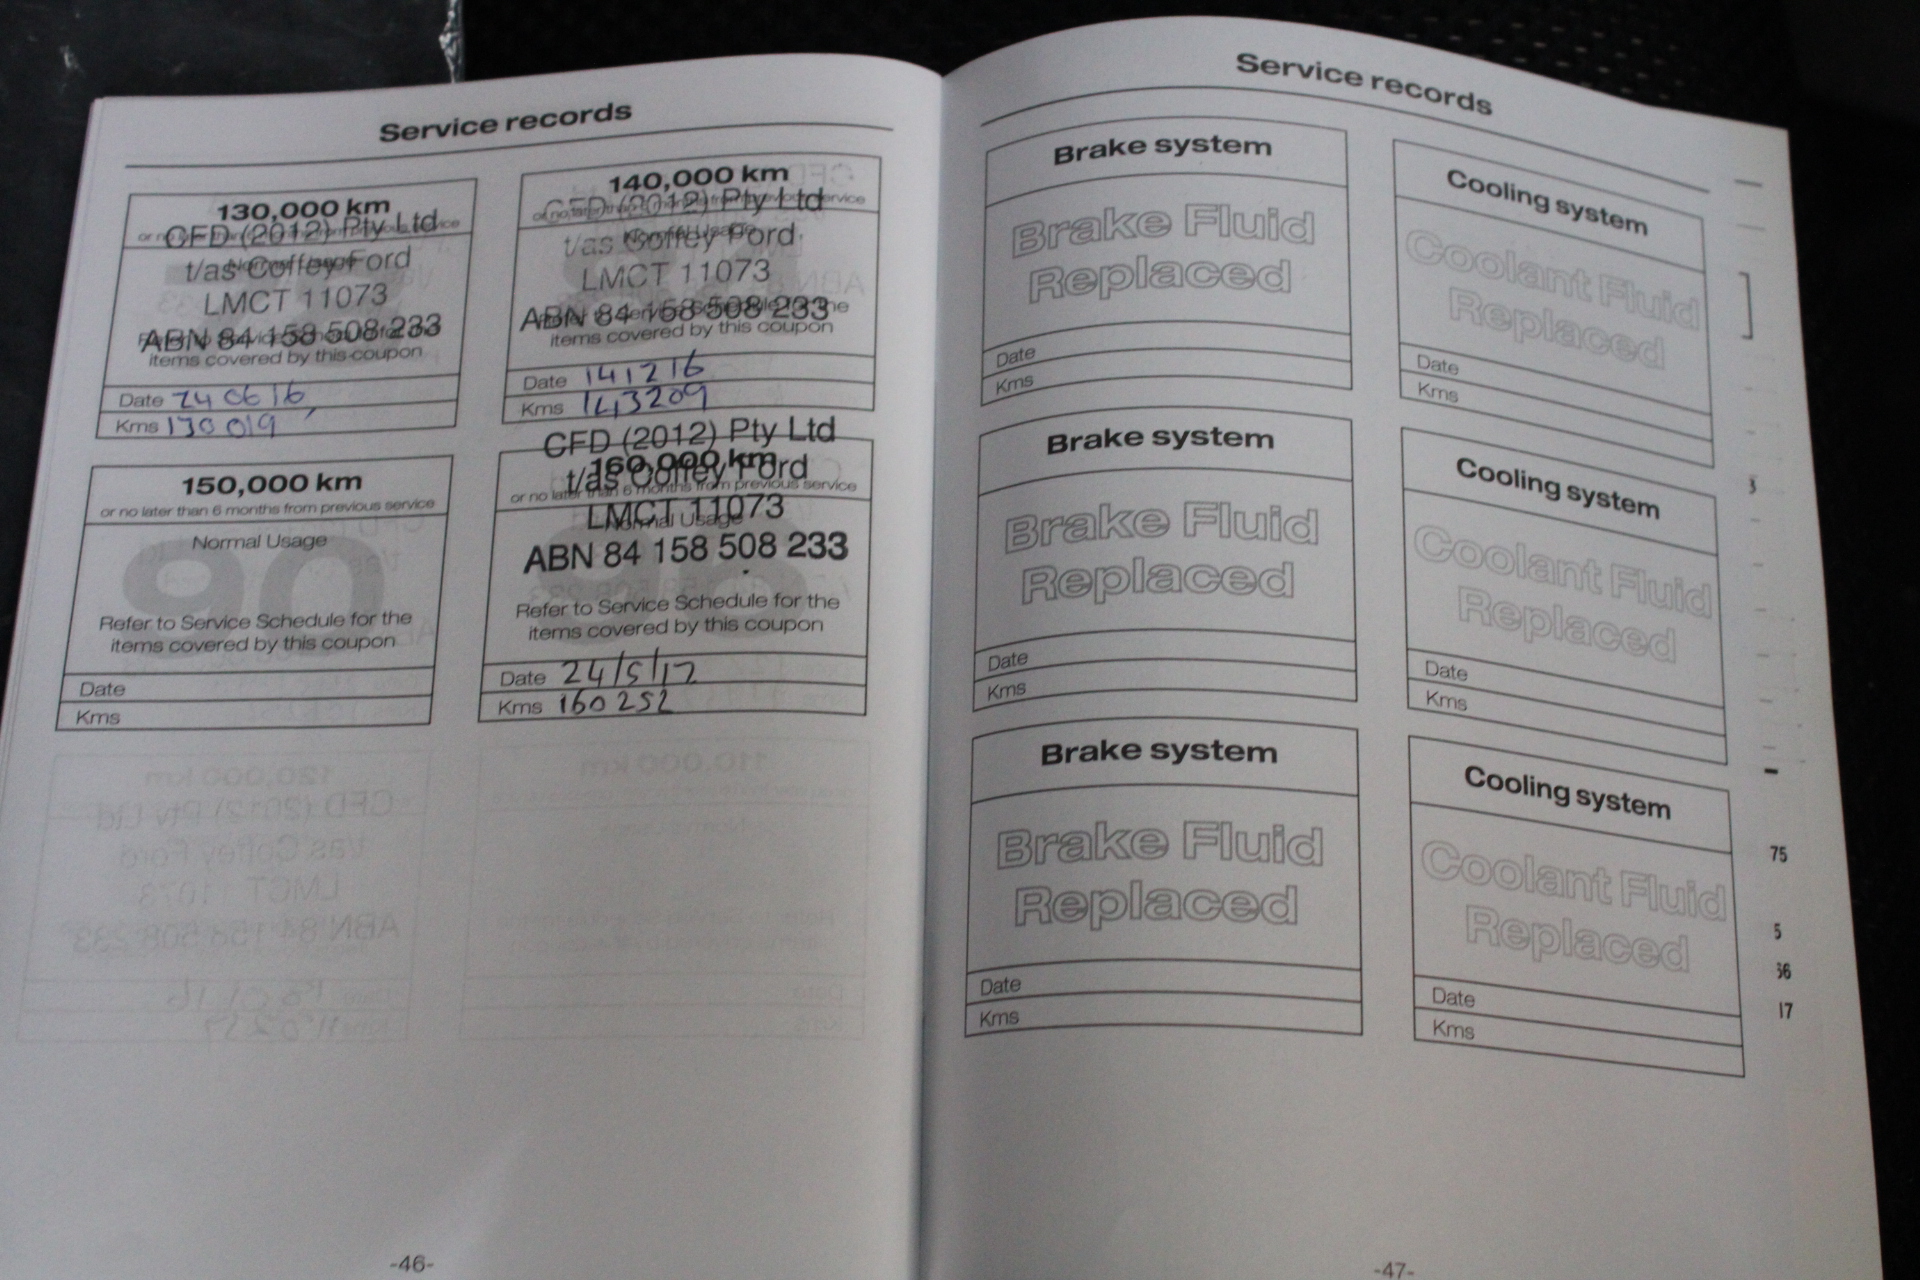 Service records
130,000 km
CFD (2012) Pty Ltd
t/as Coffey Ford
LMCT 11073
ABN 84 158 508 233
items covered by this coupon
Date 24 06 16
Kms 130 019
140,000 km
CFD (2012) Pty Ltd
t/as Coffey Ford
LMCT 11073
ABN 84 158 508 233
items covered by this coupon
Date 141216
Kms 143209
150,000 km
or no later than 6 months from previous service
Normal Usage
Refer to Service Schedule for the
items covered by this coupon
Date
Kms
CFD (2012) Pty Ltd
160,000 km
t/as Coffey Ford
or no later than 6 months from previous service
LMCT 11073
Normal Usage
ABN 84 158 508 233
Refer to Service Schedule for the
items covered by this coupon
Date 24/5/17
Kms 160 252
-46-
Service records
Brake system
Brake Fluid
Replaced
Date
Kms
Cooling system
Coolant Fluid
Replaced
Date
Kms
Brake system
Brake Fluid
Replaced
Date
Kms
Cooling system
Coolant Fluid
Replaced
Date
Kms
Brake system
Brake Fluid
Replaced
Date
Kms
Cooling system
Coolant Fluid
Replaced
Date
Kms
75
5
36
17
-47-